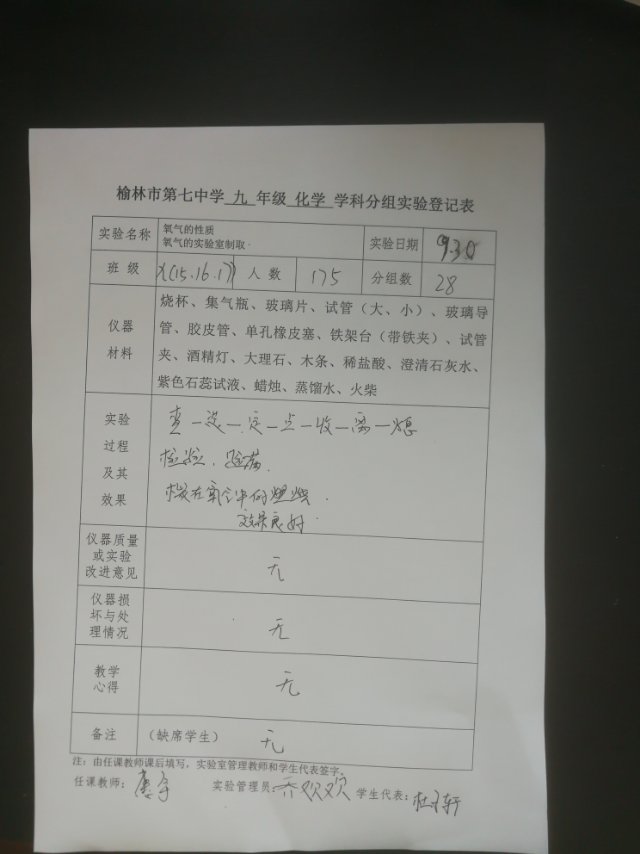 榆林市第七中学 九 年级 化学 学科分组实验登记表
实验名称 氧气的性质 实验日期 9.30
氧气的实验室制取.
班 级 (15.16.17) 人 数 175 分组数 28
仪器材料
烧杯、集气瓶、玻璃片、试管（大、小）、玻璃导
管、胶皮管、单孔橡皮塞、铁架台（带铁夹）、试管
夹、酒精灯、大理石、木条、稀盐酸、澄清石灰水、
紫色石蕊试液、蜡烛、蒸馏水、火柴
实验过程及其效果
查一装一定一点一收一离一熄
检验. 验满.
在氧气中的燃烧.
效果良好.
仪器质量或实验改进意见 无
仪器损坏与处理情况 无
教学心得 无
备注 （缺席学生） 无
注：由任课教师课后填写，实验室管理教师和学生代表签字。
任课教师： 实验管理员: 乔欢欢 学生代表: